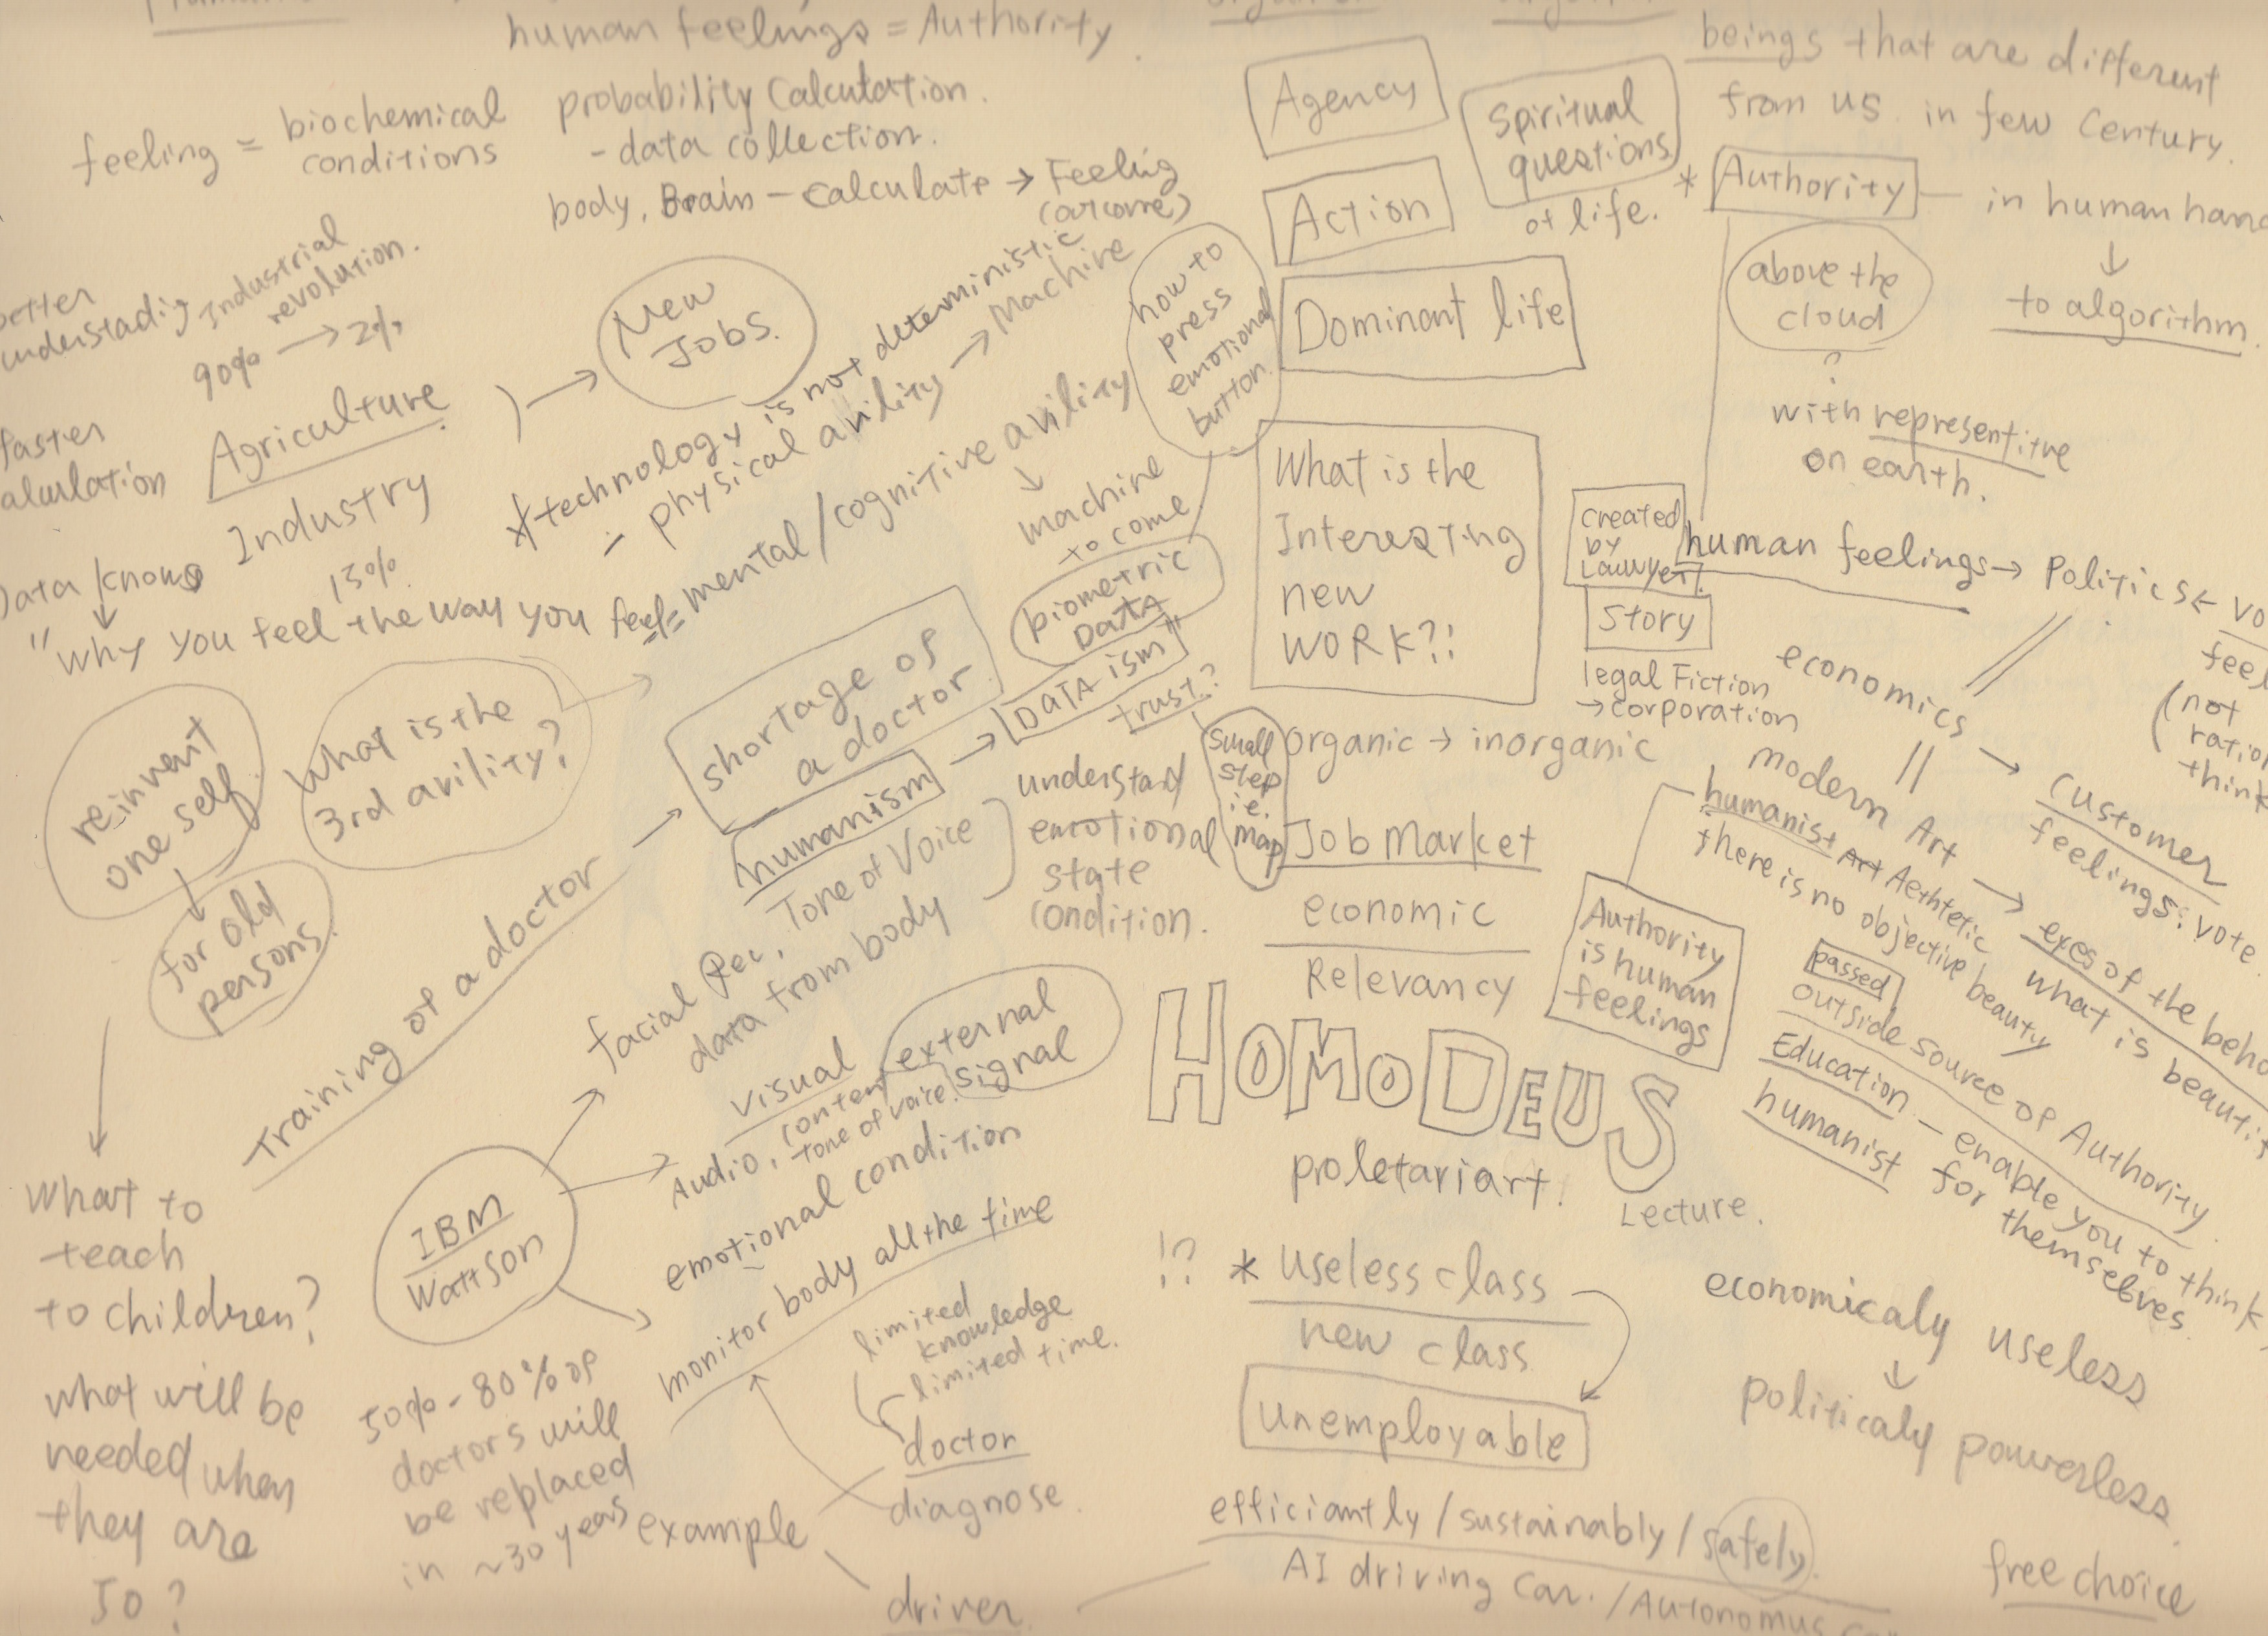 human feelings = Authority.
feeling = biochemical
conditions
probability Calculation.
- data collection.
body, Brain - calculate → Feeling
(outcome)
Industrial
revolution.
90% → 2%
Agriculture
Industry
13%
faster
Data knows
↓
"why you feel the way you feel=
mental / cognitive avility
↓
machine
to come
New
Jobs.
* technology is not deterministic
- physical avility → Machine
how to
press
emotional
button.
biometric
DATA
reinvent
one self
↓
for old
persons.
What is the
3rd avility?
shortage of
a doctor
humanism → "DATA ism"
trust?
Training of a doctor →
small
step
i.e.
map
facial Rec, Tone of Voice
data from body
understand
emotional
state
condition.
visual
content
tone of voice.
external
signal
Audio,
emotional condition
monitor body all the time
IBM
Wattson
What to
teach
to children?
what will be
needed when
they are
50?
50% - 80% of
doctors will
be replaced
in ~30 years
limited
knowledge
limited time.
doctor
diagnose.
example
driver
Agency
Action
Dominant life
Spiritual
questions
of life.
What is the
Interesting
new
WORK?!
created
by
Lawyer!
Story
legal Fiction
→ corporation
organic → inorganic
Job Market
economic
Relevancy
HOMO DEUS
Lecture.
proletariart.
!? * useless class
new class
unemployable
efficiantly / sustainably / safely.
AI driving Car. / Autonomus
beings that are different
from us in few Century.
* Authority — in human
↓
to algorithm.
above the
cloud
?
with representitve
on earth.
human feelings → Politics ←
economics → customer
feelings: vote.
(not
think
modern Art → eyes of the
what is
humanist Art Aethtetic
there is no objective beauty
Authority
is human
feelings
passed
outside source of Authority.
Education — enable you to think
humanist for themselves.
economicaly useless
↓
politicaly powerless.
free choice